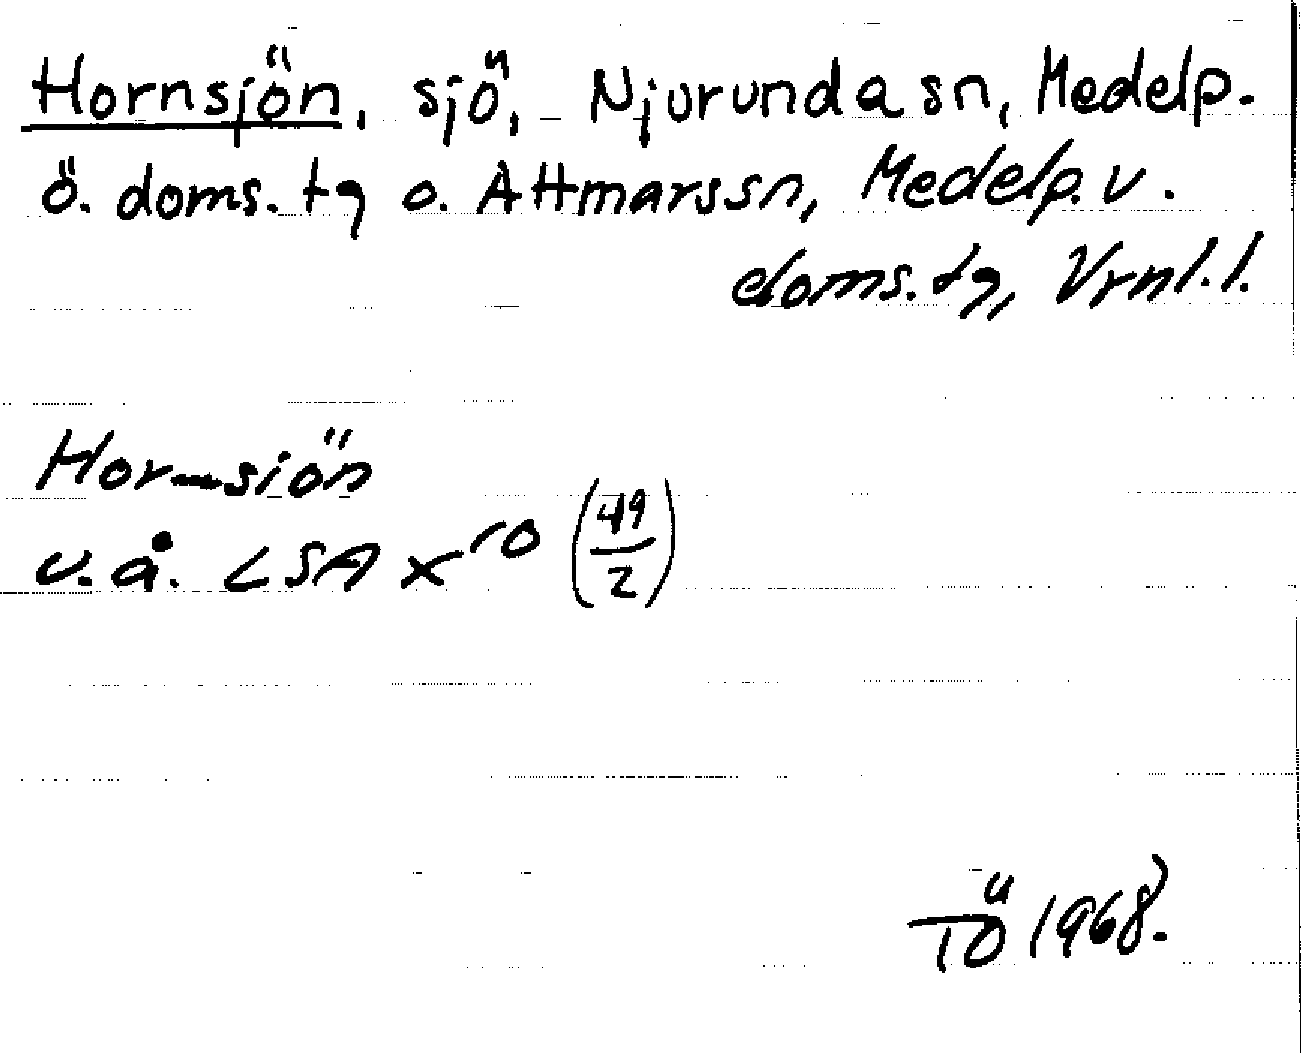 Hornsjön, sjö, Njurunda sn, Medelp.
ö. doms. tg o. Attmarssn, Medelp. v.
doms. tg, Vrnl. l.
Hornsiön
u. å. LSA x ro (49/2)
TÖ 1968.